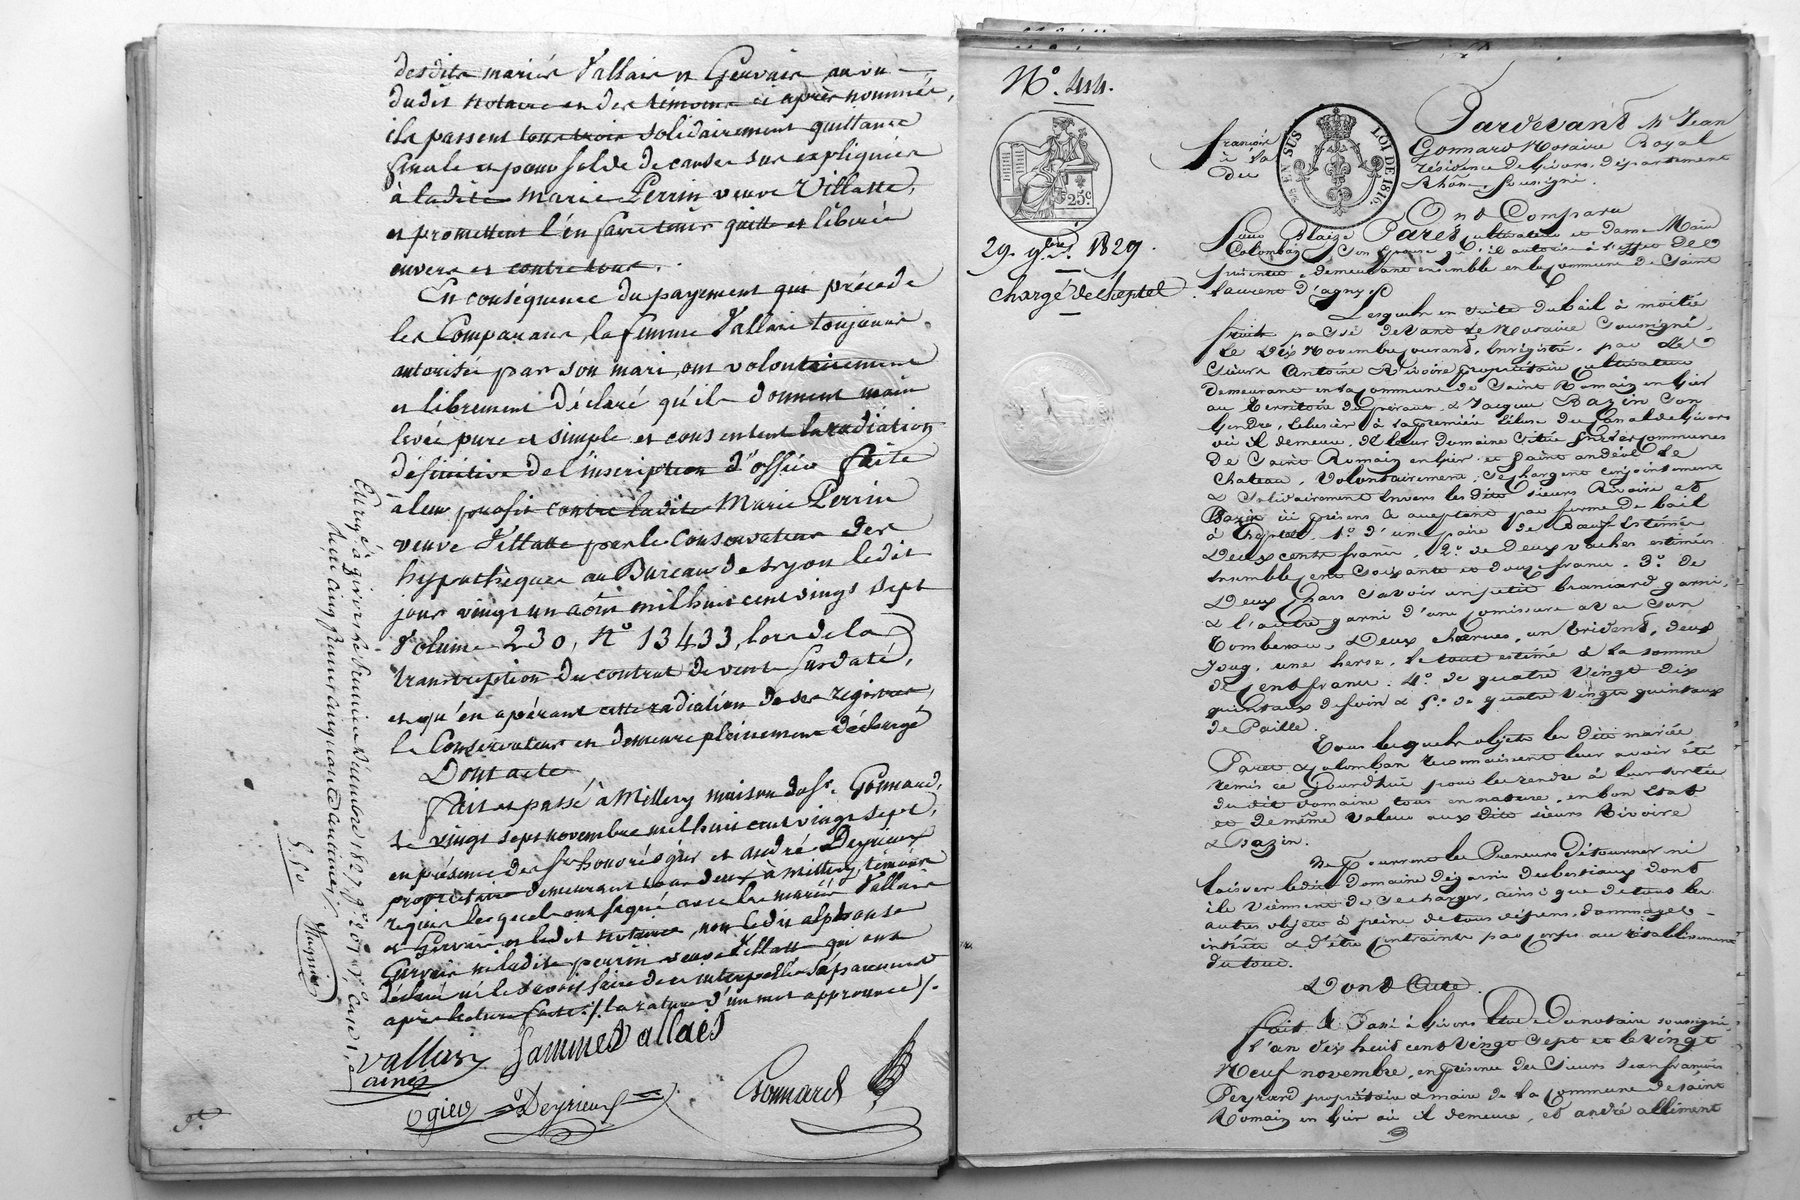 desdits mariés Vallais et Gervais, au vu
dudit notaire et des témoins ci après nommés,
ils passent tous trois solidairement quittance
finale et pour solde de causes sus expliquées
à ladite Marie Perrin veuve Villatte,
et promettent l'en faire tenir quitte et libérée
envers et contre tous.
En conséquence du payement qui précéde
les Comparans, la femme Vallais toujours
autorisée par son mari, ont volontairement
et librement déclaré qu'ils donnent main
levée pure et simple et consentent la radiation
définitive de l'inscription d'office faite
à leur profit contre ladite Marie Perrin
veuve Villatte par le Conservateur des
hypothèques au Bureau de Lyon ledit
jour vingt un août mil huit cent vingt sept
Volume 230, N° 13433, lors de la
transcription du contrat de vente susdaté,
et qu'en opérant cette radiation de ses registres,
le Conservateur en demeure pleinement déchargé
Dont acte
fait et passé à Millery maison du Sr. Gonnard,
le vingt sept novembre mil huit cent vingt sept,
en présence des Srs honoré ogier et andré Deyrieux
propriétaires demeurant tous deux à Millery témoins
requis lesquels ont signé avec les mariés Vallais
et Gervais et ledit notaire, non ledit alphonse
Gervais ni ladite perrin veuve Villatte qui ont
déclaré ne le savoir faire de ce interpellés séparément
après lecture faite ./. la rature d'un mot approuvée ./.
Vallais ainé
femme Vallais
ogier
Deyrieux
Gonnard
Enregé à givors le premier Décembre 1827, fo 20
Reçu cinq francs cinquante centimes
5.50
N° 44.
25c
29. 9bre. 1827.
Chargé de cheptel
EN SUS
LOI DE 1816.
Pardevant Me Jean
françois Gonnard Notaire Royal
à la résidence de Givors, département
du Rhône, soussigné.
Ont Comparu
Sieur Blaize Paret, cultivateur et dame Marie
Colomban, son épouse qu'il autorise à l'effet des
présentes, demeurant ensemble en la commune de Saint
Laurent d'agny
Lesquels en suite du bail à moitié
fruits passé devant le Notaire soussigné,
le dix Novembre courant, Enregistré, par les
Sieurs Antoine Rivoire propriétaire cultivateur
demeurant en la commune de Saint Romain en Gier
au territoire de peraux, & Jacques Bazin son
Gendre, éclusier à la première Ecluse du Canal de Givors
où il demeure, de leur Domaine situé sur les communes
de Saint Romain en Gier et Saint andéol le
Chateau, Volontairement, se chargent conjointement
& solidairement envers les dits sieurs Rivoire et
Bazin ici présens & acceptans par forme de bail
à Cheptel, 1° d'une paire de Bœufs Estimés
Deux cents francs, 2° de Deux vaches estimées
ensemble cent soixante et douze francs. 3° de
Deux chars savoir un petit brancard garni,
& l'autre garni d'une comissure avec son
Tombereau, Deux charrues, un trident, deux
Joug, une herse, le tout estimé à la somme
de cent francs. 4° de quatre vingt dix
quintaux de foin & 5°. de quatre vingts quintaux
de Paille.
Tous lesquels objets les dits mariés
Paret & Colomban reconnaissent leur avoir été
remis ce jourd'hui pour les rendre à leur sortie
dudit domaine tous en nature, en bon état
et de même valeur aux dits sieurs Rivoire
& Bazin.
Ne pourront les Preneurs détourner ni
laisser ledit domaine dégarni des bestiaux dont
ils viennent de se charger, ainsi que de tous les
autres objets à peine de tous dépens, dommages
intérêts & d'être contraints par corps au rétablissement
du tout.
Dont Acte.
fait & Passé à Givors Etude du notaire soussigné,
l'an dix huit cent Vingt Sept et le vingt
Neuf novembre, en présence des Sieurs Jean françois
Peyrard propriétaire & maire de la commune de saint
Romain en Gier où il demeure, et andré alliment